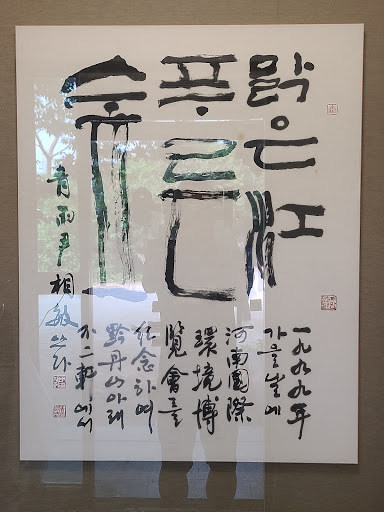 맑은江
푸른
숲
一九九九年
가을날에
河南國際
環境博
覽會를
紀念하여
黔丹山아래
不二軒에서
靑雨尹相敏쓰다